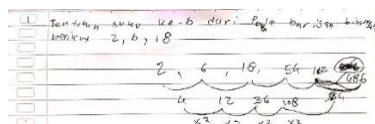 1 Tentukan suku ke-6 dari pola barisan bilangan
berikut 2, 6, 18
2, 6, 18, 54, 162 486
4 12 36 108
x3 x3 x3